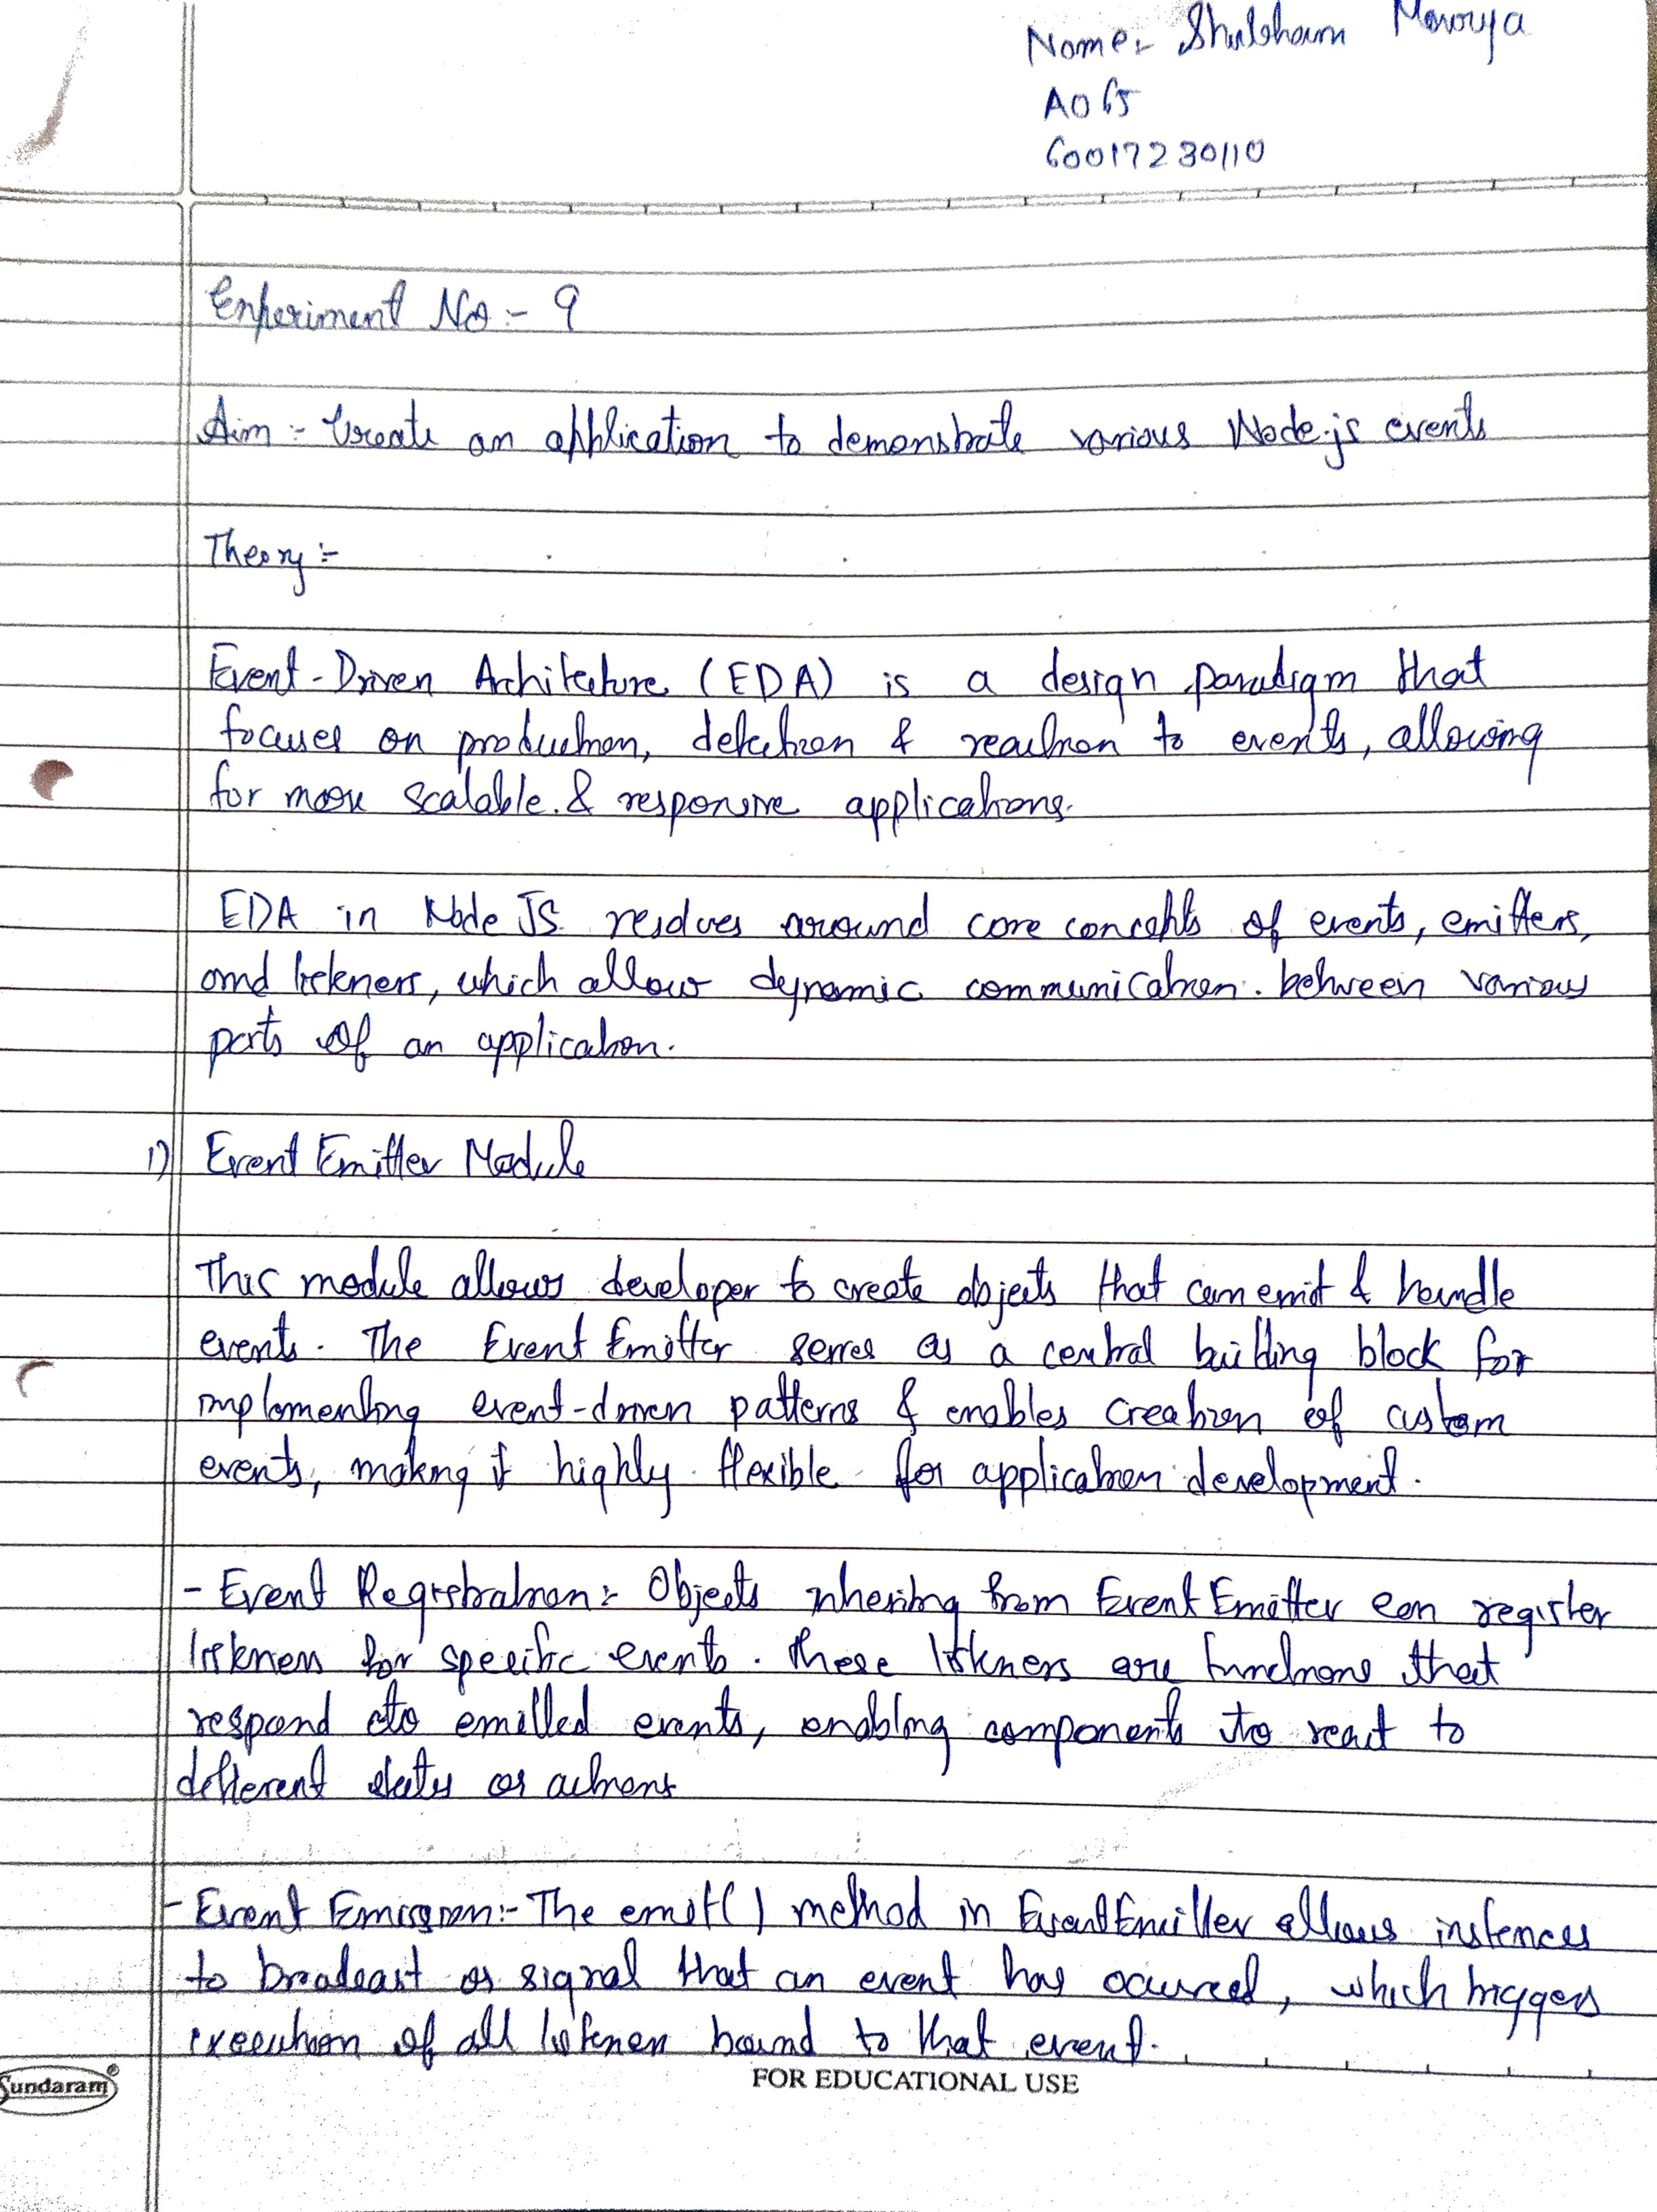 Name:- Shubham Mourya
A065
60017230110
Experiment No :- 9
Aim :- Create an application to demonstrate various Node.js events
Theory :-
Event-Driven Architecture (EDA) is a design paradigm that
focuses on production, detection & reaction to events, allowing
for more scalable & responsive applications.
EDA in Node JS revolves around core concepts of events, emitters,
and listeners, which allow dynamic communication between various
parts of an application.
1) Event Emitter Module
This module allows developer to create objects that can emit & handle
events. The Event Emitter serves as a central building block for
implementing event-driven patterns & enables creation of custom
events, making it highly flexible for application development.
- Event Registration:- Objects inheriting from Event Emitter can register
listeners for specific events. These listeners are functions that
respond to emitted events, enabling components to react to
different states or actions
- Event Emission:- The emit() method in EventEmitter allows instances
to broadcast or signal that an event has occured, which triggers
execution of all listeners bound to that event.
Sundaram®
FOR EDUCATIONAL USE